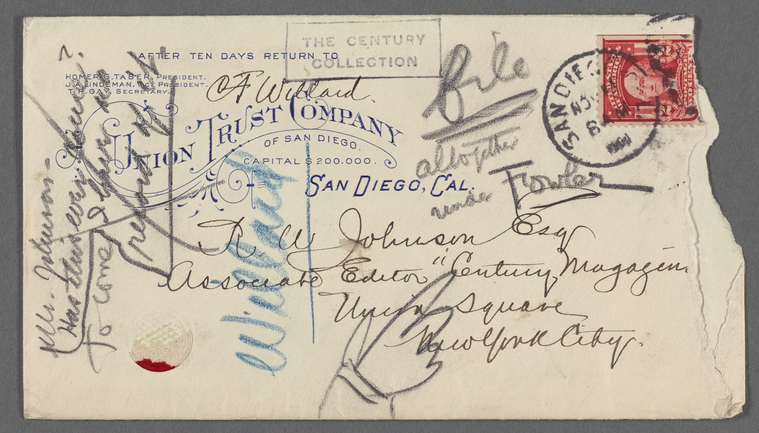 AFTER TEN DAYS RETURN TO
HOMER G. TABER, PRESIDENT.
J. A. LINDEMAN, VICE PRESIDENT.
T. R. GAY, SECRETARY.
C F Willard.
UNION TRUST COMPANY
OF SAN DIEGO.
CAPITAL $200.000.
SAN DIEGO, CAL.
THE CENTURY
COLLECTION
file
altogether
under
Fowler
SAN DIEGO
NOV
8
R U Johnson Esq
Associate Editor "Century Magazin
Union Square
New York City.
Willard
Mr. Johnson-
Has this ever
to come? I have no
record of it